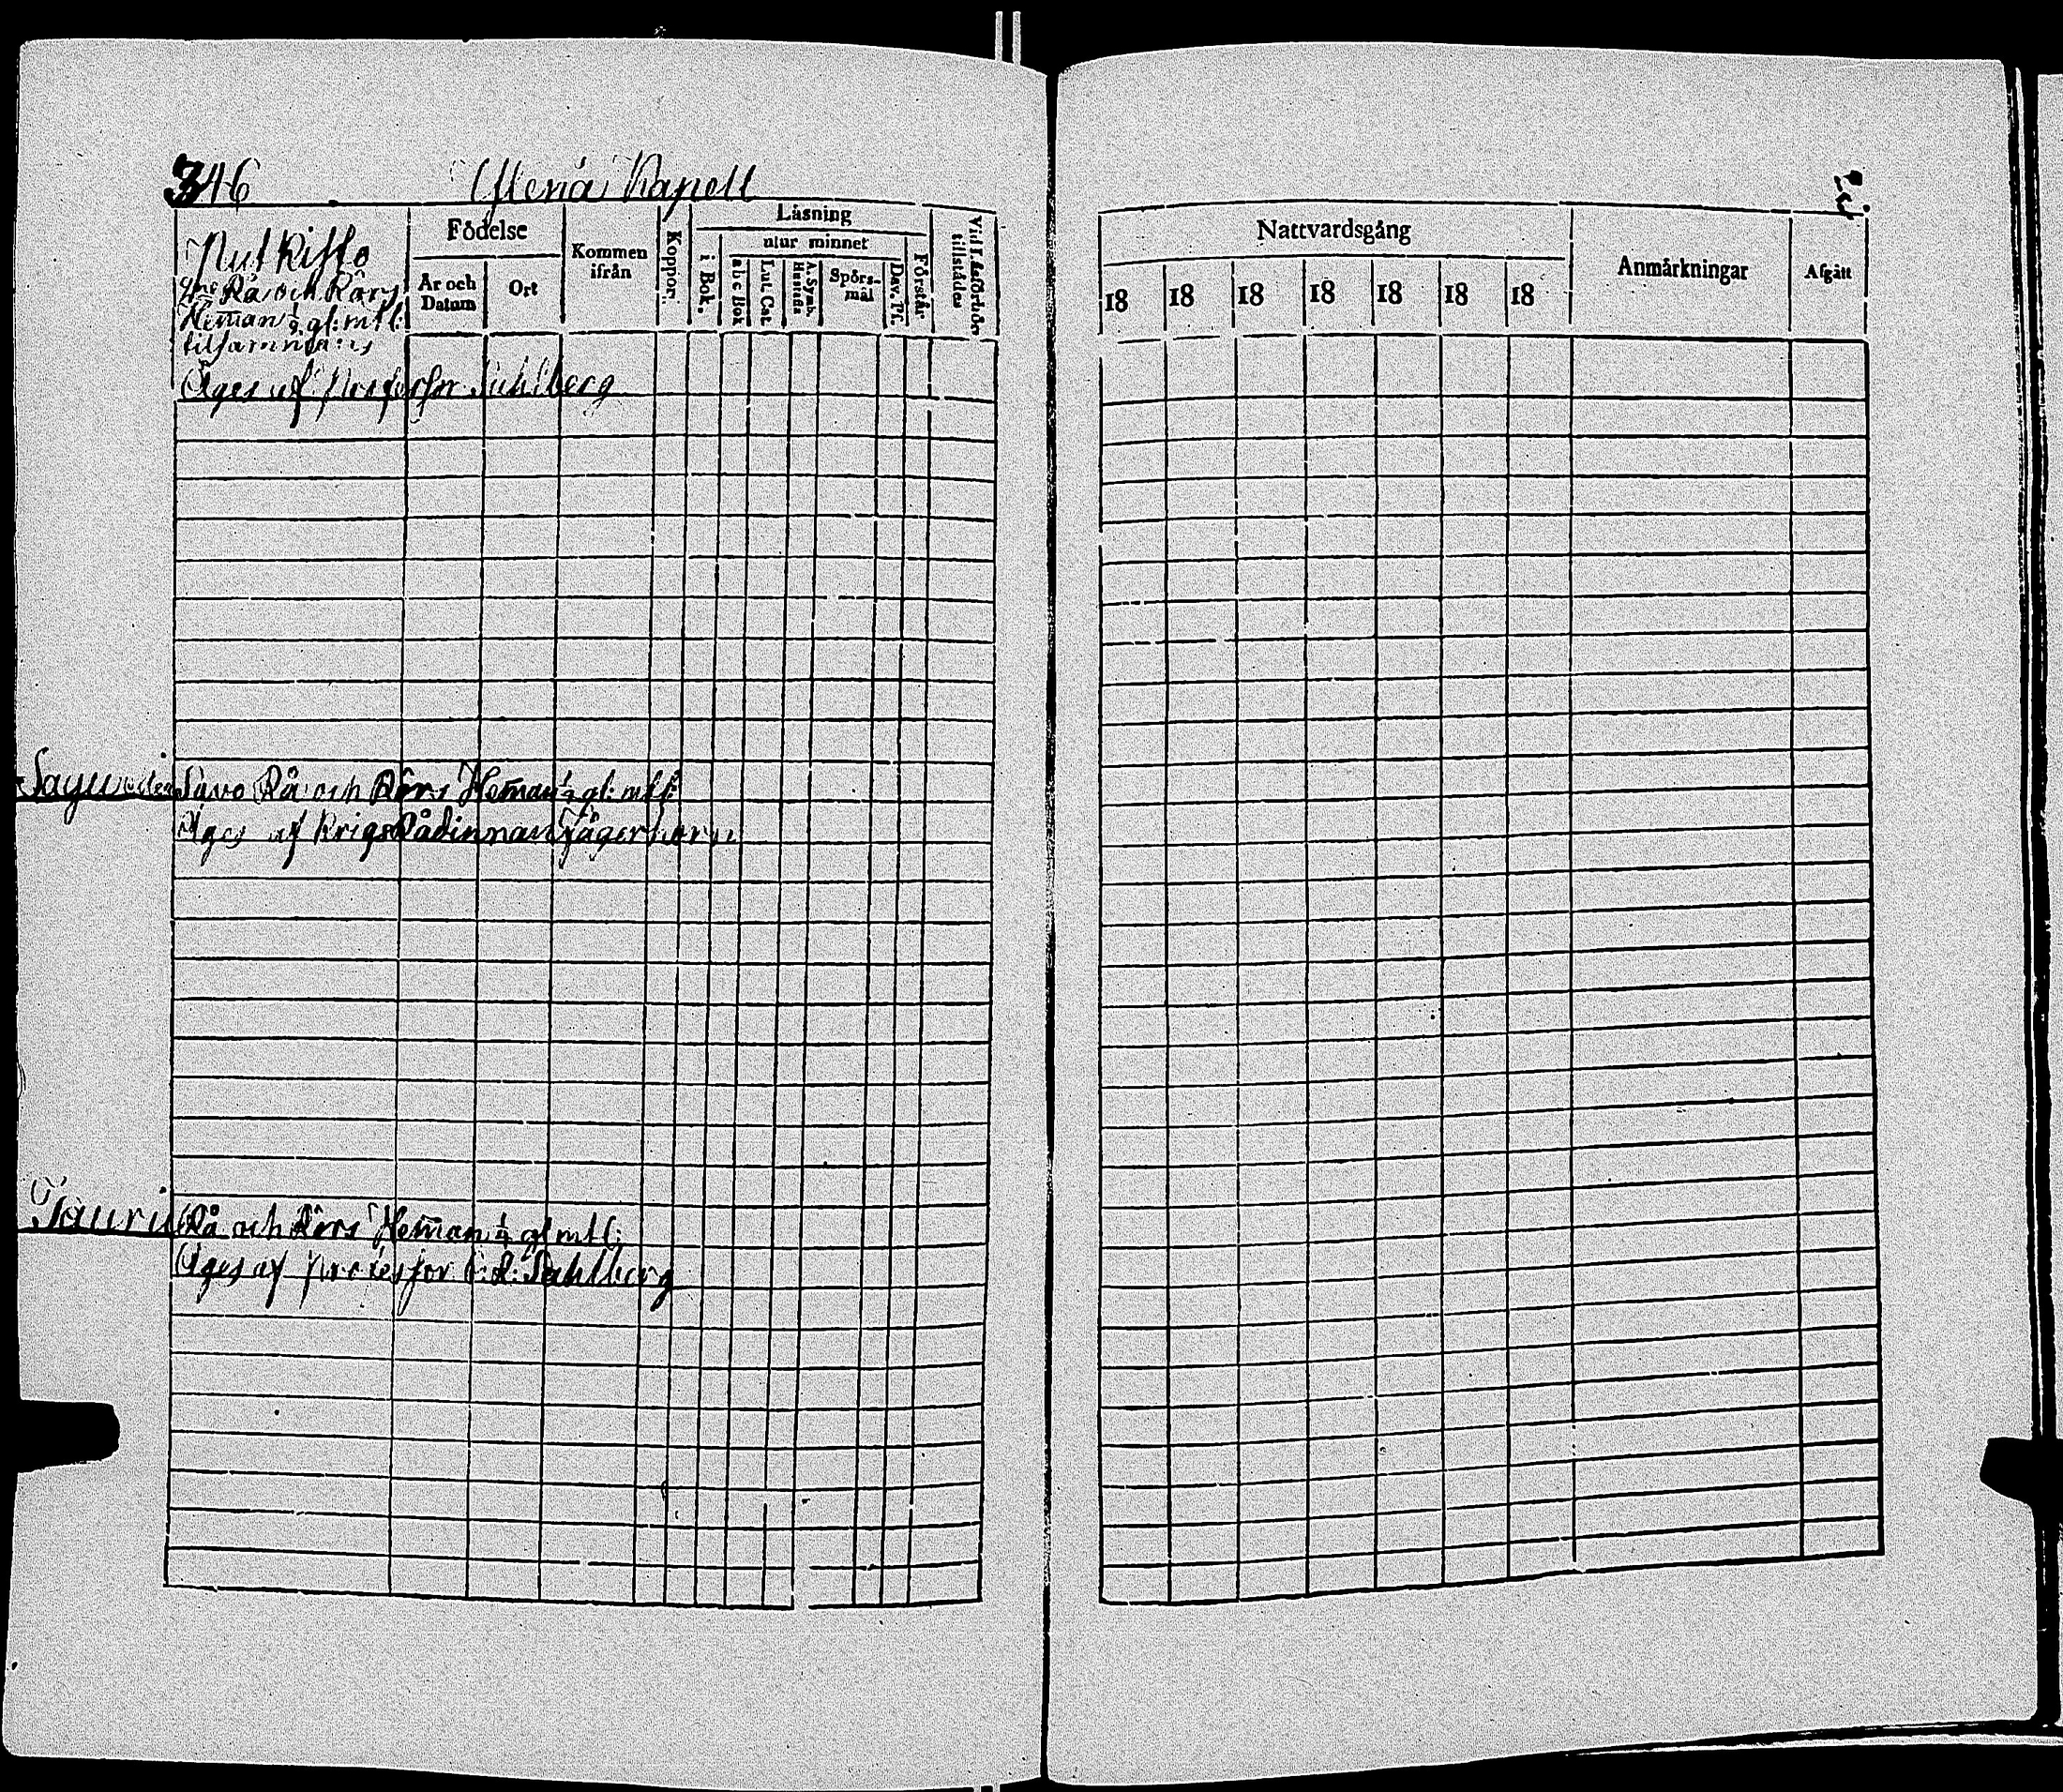 346 Yläne Kapell
Nutkitto
Rå och Rörs
Heman ½ gl: mtl:
tilsammans
Födelse
År och Datum
Ort
Kommen ifrån
Koppor.
Läsning
i Bok.
utur minnet
abc Bok
Lut. Cat.
A. Symb. Hustafla
Spörs-mål
Dav. Ps.
Förstår
Vid Läsförhör tillstädes
Äges af Professor Sahlberg
Savo Rå och Rörs Heman gl: mtl:
Äges af KrigsRådinnan Jägerhorn
Tauru Rå och Rörs Heman ¼ gl mtl:
Äges af Professor C: R: Sahlberg
Nattvardsgång
18 18 18 18 18 18 18
Anmärkningar
Afgått